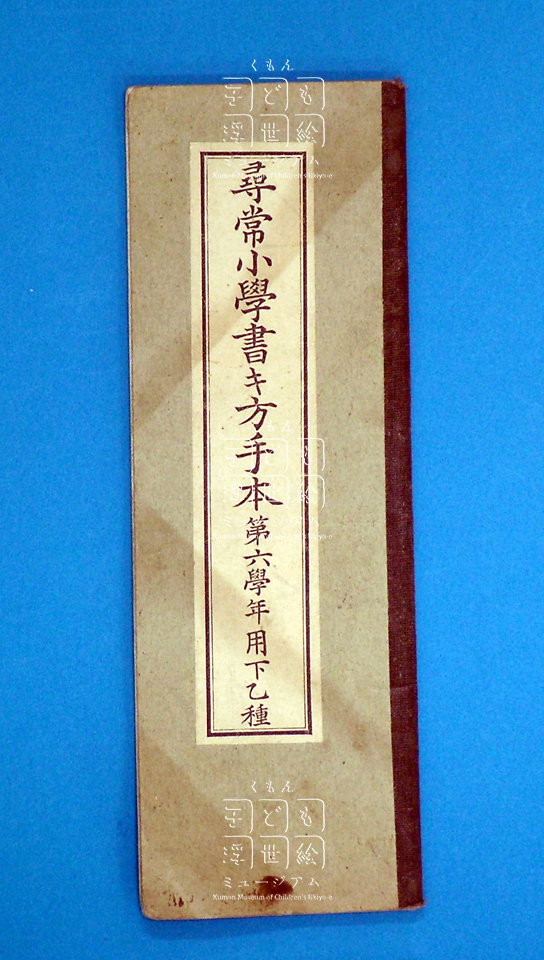 くもん
子ども
浮世絵
ミュージアム
Kumon Museum of Children's Ukiyo-e
尋常小學書キ方手本第六學年用下乙種
くもん
子ども
浮世絵
ミュージアム
Kumon Museum of Children's Ukiyo-e
くもん
子ども
浮世絵
ミュージアム
Kumon Museum of Children's Ukiyo-e